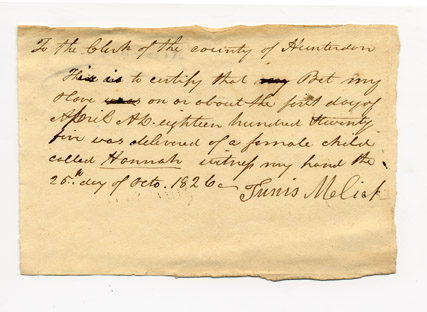 To the Clerk of the county of Hunterdon
This is to certify that my Bet my
slave was on or about the first day of
April AD. eighteen hundred & twenty
five was delivered of a female child
called Hannah witness my hand the
25.th day of Octo. 1826
Tunis Melick